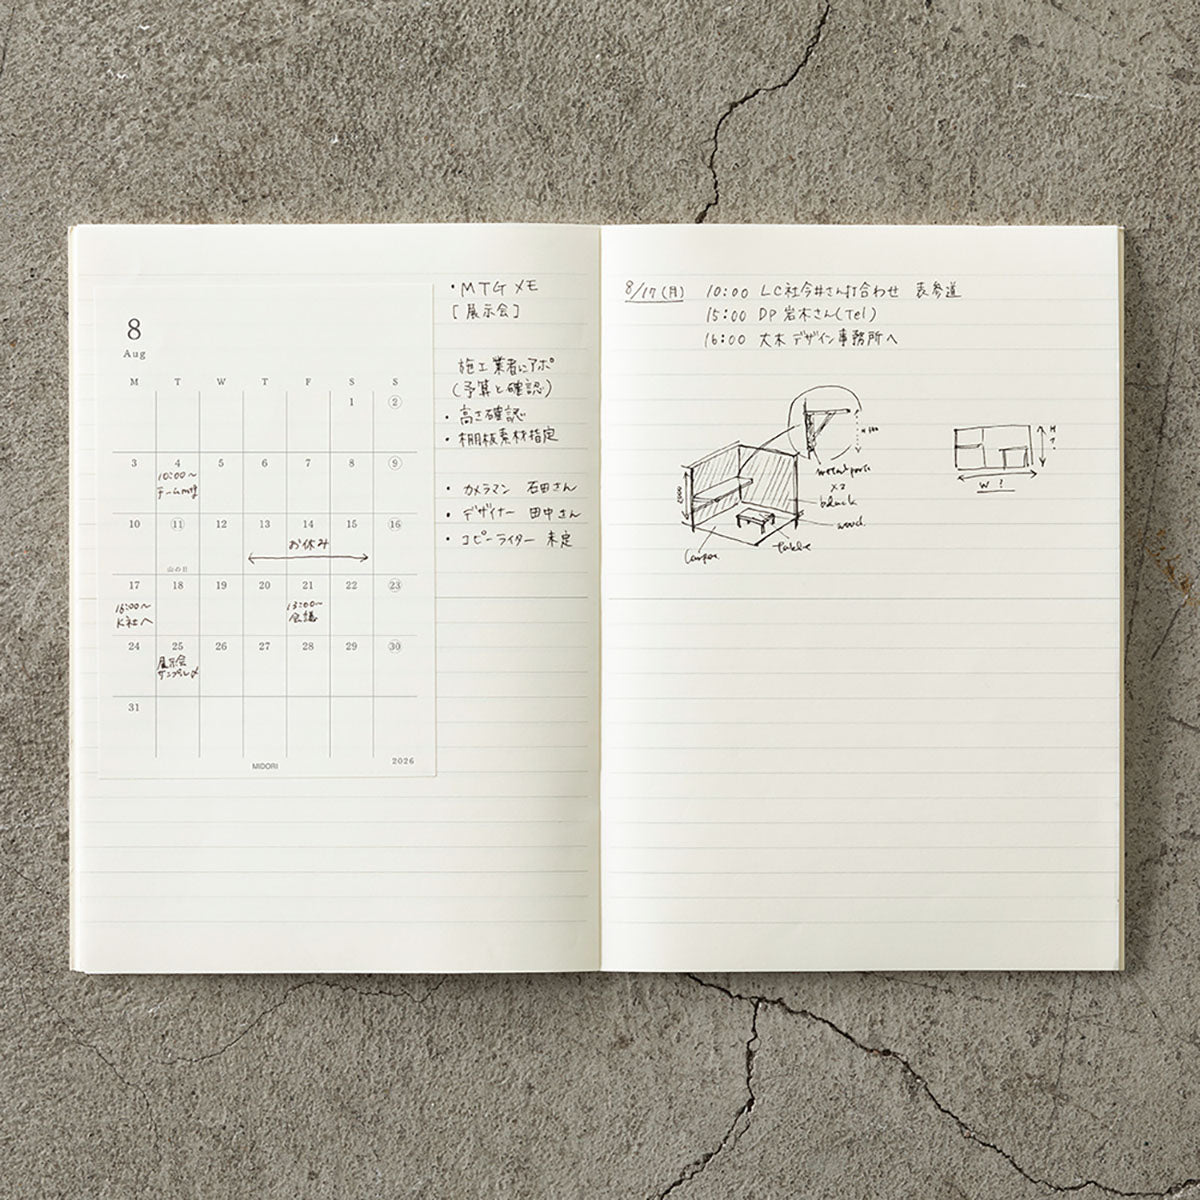 8
Aug
M T W T F S S
1 2
3 4 5 6 7 8 9
10:00〜
チームmtg
10 11 12 13 14 15 16
お休み
山の日
17 18 19 20 21 22 23
16:00〜
K社へ
13:00〜
会議
24 25 26 27 28 29 30
展示会
サンプル〆
31
MIDORI
2026
・MTGメモ
[展示会]
施工業者にアポ
(予算と確認)
・高さ確認
・棚板素材指定
・カメラマン 石田さん
・デザイナー 田中さん
・コピーライター 未定
8/17(月) 10:00 LC社今井さん打合わせ 表参道
15:00 DP 岩木さん(Tel)
16:00 大木デザイン事務所へ
x2
black
wood
table
H
?
W ?